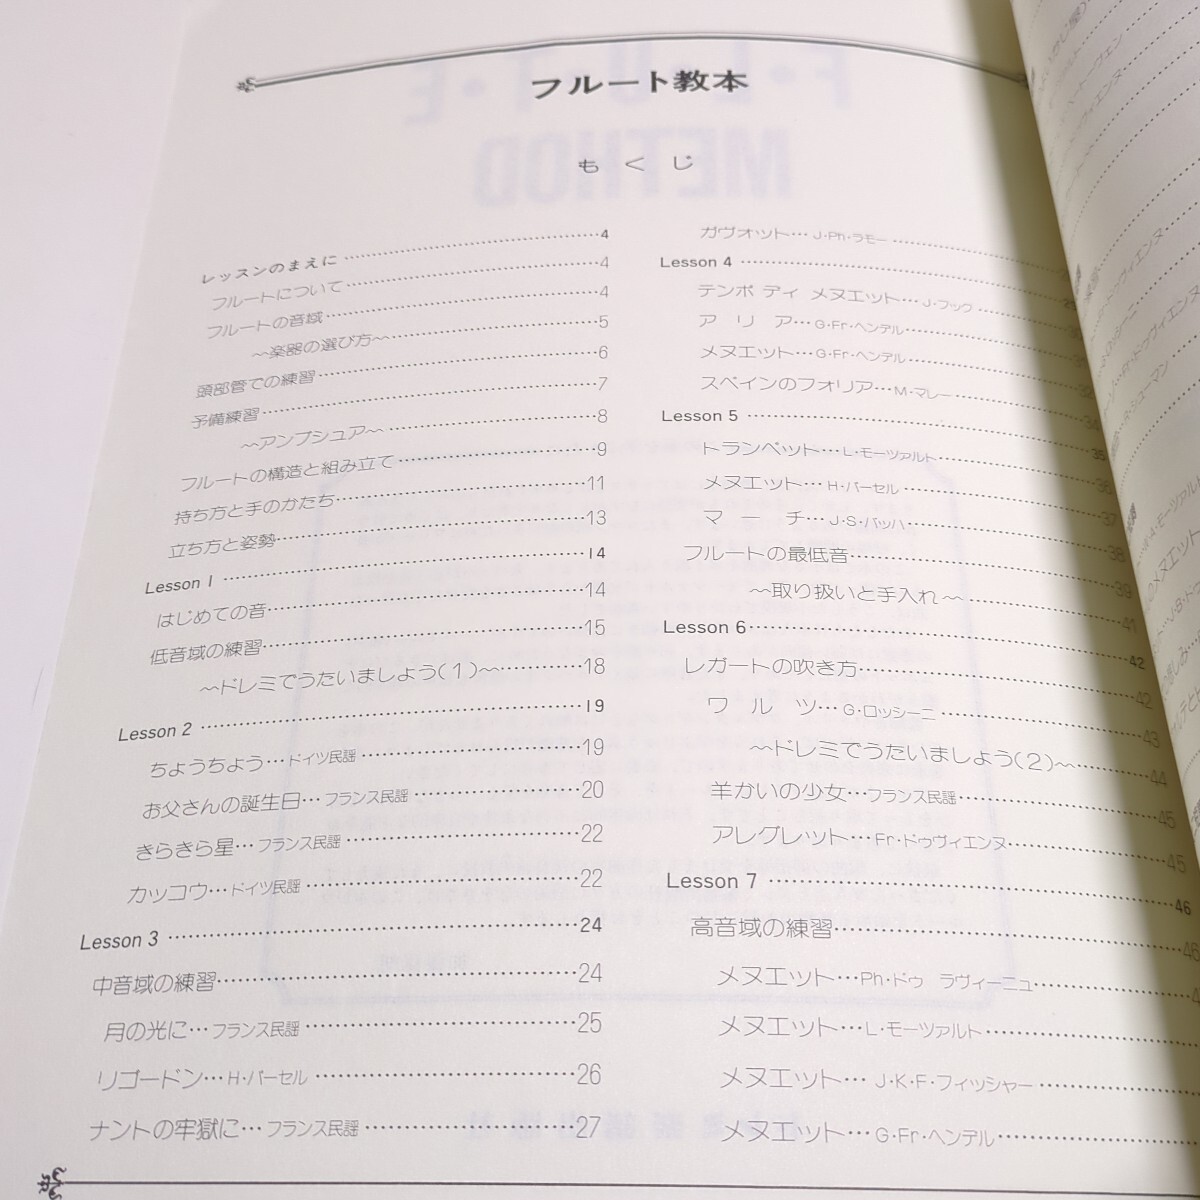 フルート教本
もくじ
レッスンのまえに…4
フルートについて…4
フルートの音域…4
～楽器の選び方～…5
頭部管での練習…6
予備練習…7
～アンブシュア～…8
フルートの構造と組み立て…9
持ち方と手のかたち…11
立ち方と姿勢…13
Lesson 1…14
はじめての音…14
低音域の練習…15
～ドレミでうたいましよう(1)～…18
Lesson 2…19
ちようちよう…ドイツ民謡…19
お父さんの誕生日…フランス民謡…20
きらきら星…フランス民謡…22
カッコウ…ドイツ民謡…22
Lesson 3…24
中音域の練習…24
月の光に…フランス民謡…25
リゴードン…H・パーセル…26
ナントの牢獄に…フランス民謡…27
ガヴォット…J・Ph・ラモー…
Lesson 4…29
テンポ ディ メヌエット…J・フック…30
アリア…G・Fr・ヘンデル…31
メヌエット…G・Fr・ヘンデル…32
スペインのフォリア…M・マレー…34
Lesson 5…35
トランペット…L・モーツァルト…36
メヌエット…H・パーセル…37
マーチ…J・S・バッハ…38
フルートの最低音…39
～取り扱いと手入れ～…41
Lesson 6…42
レガートの吹き方…42
ワルツ…G・ロッシーニ…43
～ドレミでうたいましよう(2)～…44
羊かいの少女…フランス民謡…45
アレグレット…Fr・ドゥヴィエンヌ…45
Lesson 7…46
高音域の練習…46
メヌエット…Ph・ドゥ ラヴィーニュ…
メヌエット…L・モーツァルト…
メヌエット…J・K・F・フィッシャー…
メヌエット…G・Fr・ヘンデル…